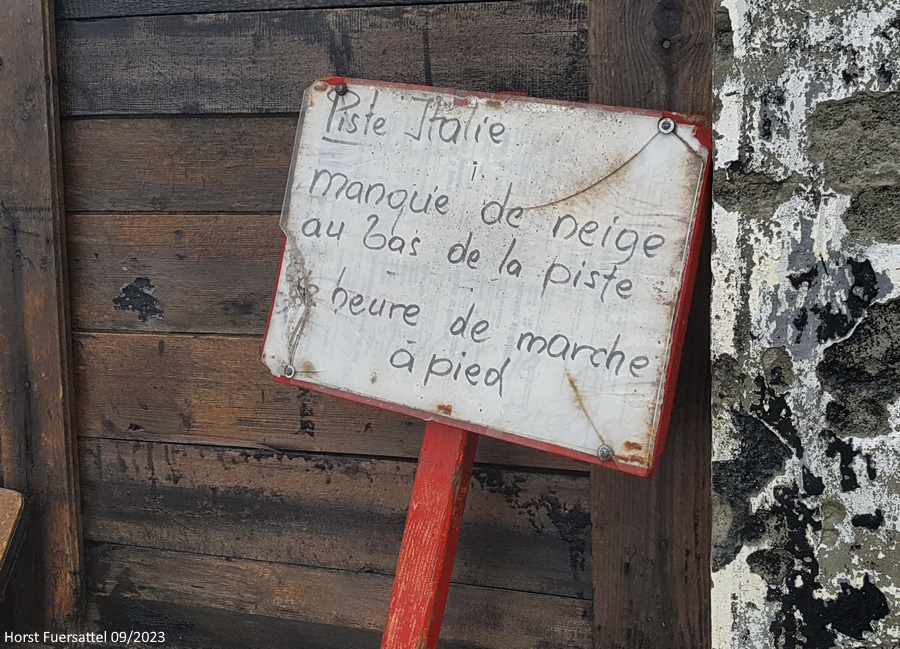 Piste Italie
manque de neige
au bas de la piste
heure de marche
à pied
Horst Fuersattel 09/2023